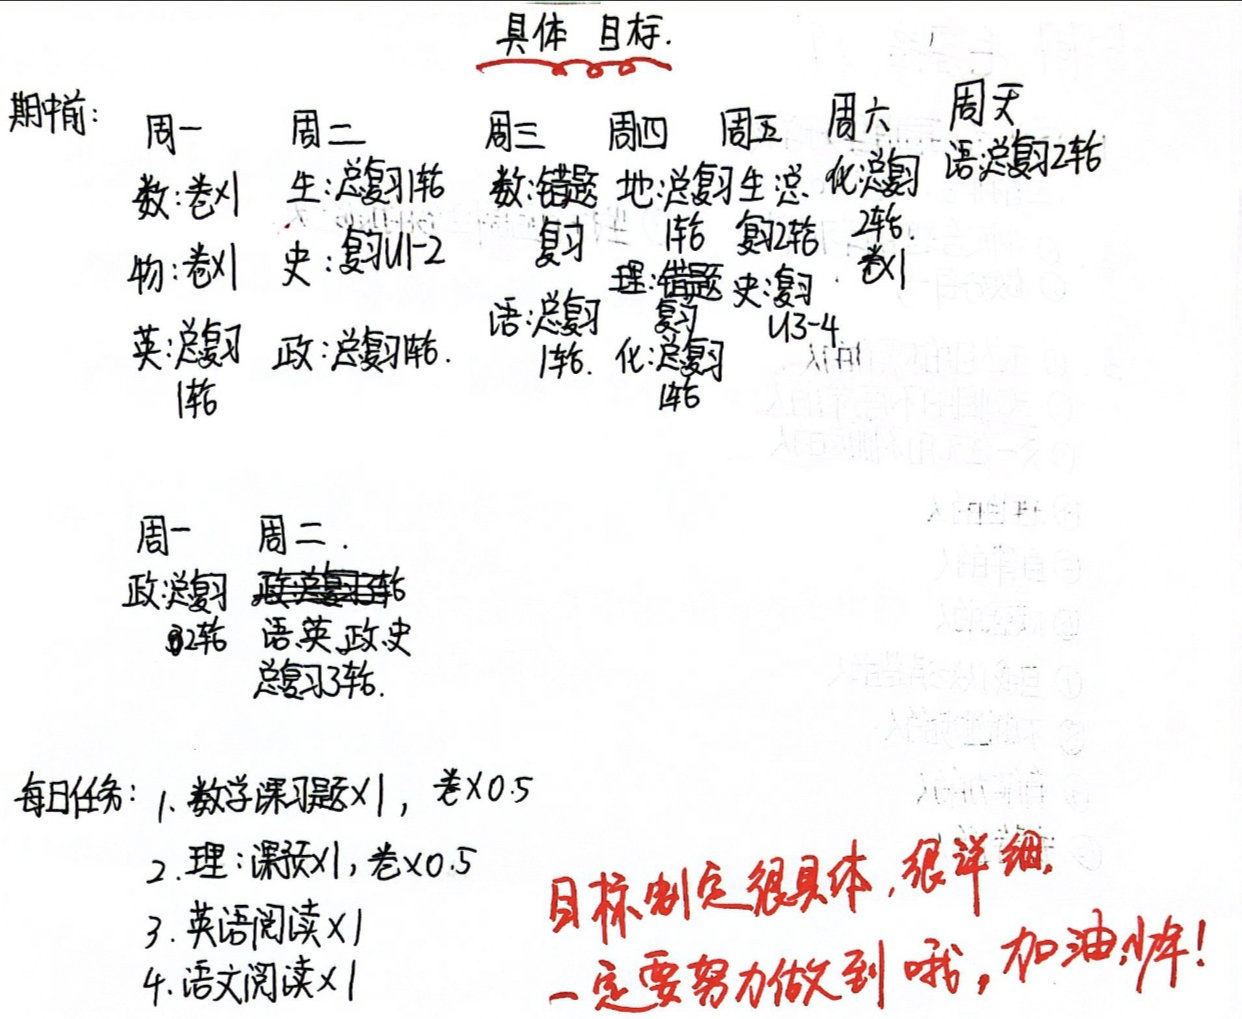 具体 目标.
期中前:
周一 周二 周三 周四 周五 周六 周天
数:卷×1
物:卷×1
英:总复习
1轮
生:总复习1轮
史:复习U1-2
政:总复习1轮.
数:错题
复习
语:总复习
1轮.
地:总复习
1轮
理:错题
复习
化:总复习
1轮
生:总
复习2轮
史:复习
U3-4
化:总复习
2轮
卷×1
语:总复习2轮
周一 周二.
政:总复习
2轮
语.英.政.史
总复习3轮.
每日任务: 1. 数学课习题×1, 卷×0.5
2. 理:课预×1, 卷×0.5
3. 英语阅读×1
4. 语文阅读×1
目标制定很具体,很详细,
一定要努力做到哦,加油,少年!